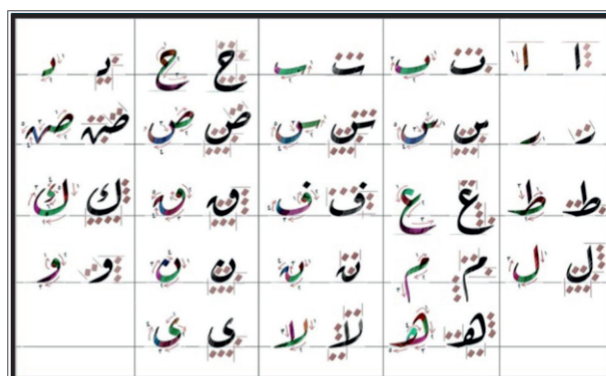 ا ا ب ب ب ب ح ح د د
ر ر س س س س ص ص صہ صہ
ط ط ع ع ف ف ق ق ك ك
ل ل م م ن ن ن ن و و
ه ه لا لا ى ى